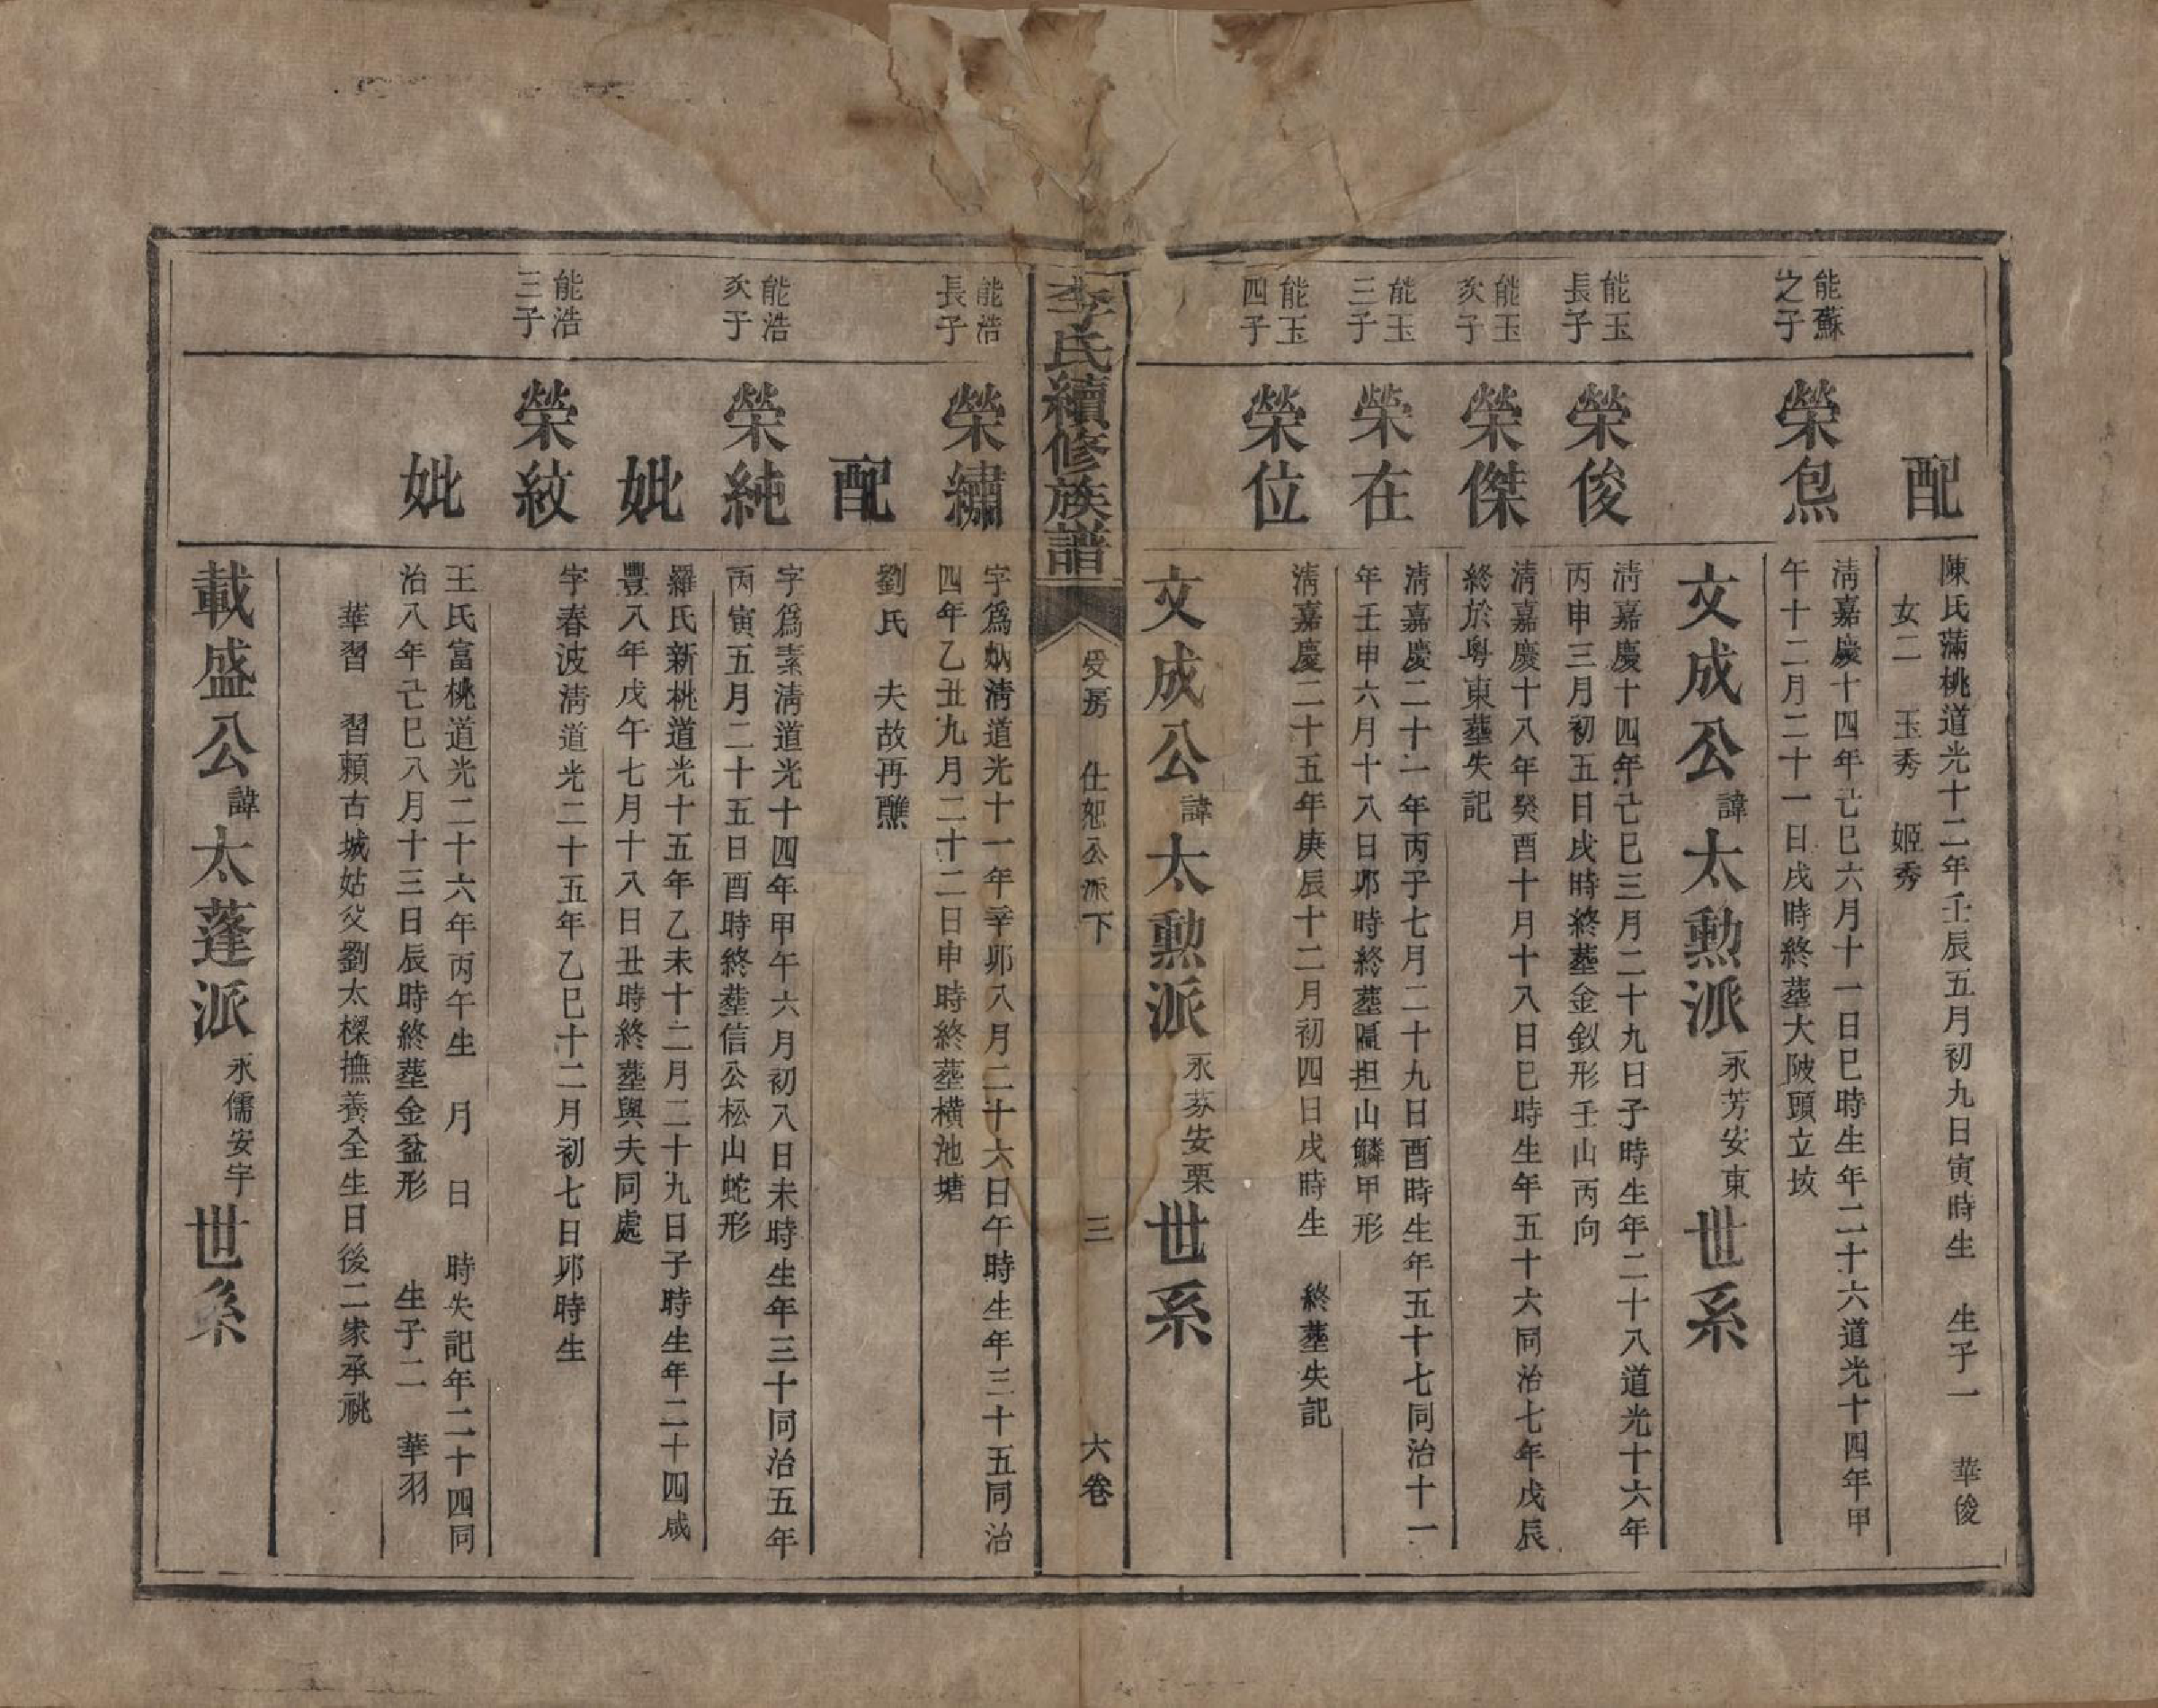 配
陳氏滿桃道光十二年壬辰五月初九日寅時生　生子一　華俊
女二　玉秀　姬秀
能蘇
之子
榮炰
淸嘉慶十四年己巳六月十一日巳時生年二十六道光十四年甲
午十二月二十一日戌時終葬大陂頭立坟
文成公諱太勲派永芳安東世系
能玉
長子
榮俊
淸嘉慶十四年己巳三月二十九日子時生年二十八道光十六年
丙申三月初五日戌時終葬金釵形壬山丙向
能玉
次子
榮傑
淸嘉慶十八年癸酉十月十八日巳時生年五十六同治七年戊辰
終於粵東葬失記
能玉
三子
榮在
淸嘉慶二十一年丙子七月二十九日酉時生年五十七同治十一
年壬申六月十八日夘時終葬匾担山鱗甲形
能玉
四子
榮位
淸嘉慶二十五年庚辰十二月初四日戌時生　終葬失記
文成公諱太勲派永芬安栗世系
李氏續修族譜
受房　仕恕公派下
三
六卷
能浩
長子
榮繡
字爲炳淸道光十一年辛夘八月二十六日午時生年三十五同治
四年乙丑九月二十二日申時終葬橫池塘
配
劉氏　夫故再醮
能浩
次子
榮純
字爲素淸道光十四年甲午六月初八日未時生年三十同治五年
丙寅五月二十五日酉時終葬信公松山蛇形
妣
羅氏新桃道光十五年乙未十二月二十九日子時生年二十四咸
豐八年戊午七月十八日丑時終葬與夫同處
能浩
三子
榮紋
字春波淸道光二十五年乙巳十二月初七日夘時生
妣
王氏富桃道光二十六年丙午生　月　日　時失記年二十四同
治八年己巳八月十三日辰時終葬金盆形　生子二　華羽
華習　習賴古城姑父劉太樑撫養全生日後二家承祧
載盛公諱太蓬派永儒安宇世系